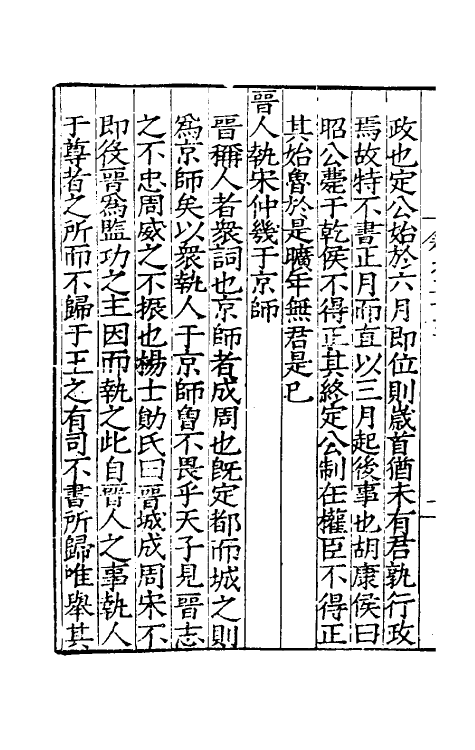 政也定公始於六月即位則歲首猶未有君執行政
焉故特不書正月而直以三月起後事也胡康侯曰
昭公薨于乾侯不得正其終定公制在權臣不得正
其始魯於是曠年無君是已
晉人執宋仲幾于京師
晉稱人者衆詞也京師者成周也旣定都而城之則
爲京師矣以衆執人于京師曾不畏乎天子見晉志
之不忠周威之不振也楊士勛氏曰晉城成周宋不
即役晉爲監功之主因而執之此自晉人之事執人
于尊者之所而不歸于王之有司不書所歸唯舉其